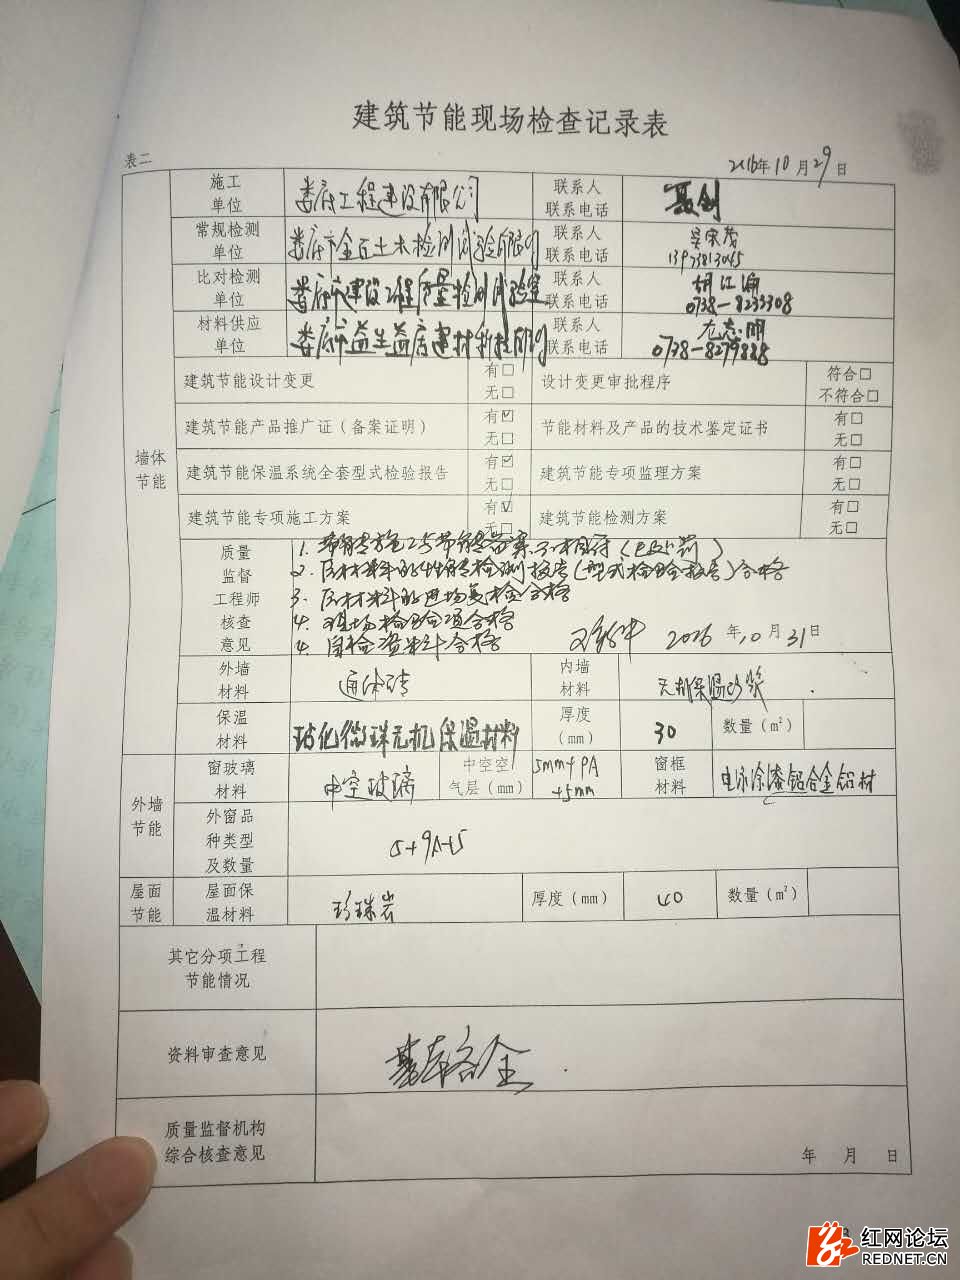 建筑节能现场检查记录表
表二
2016年10月29日
施工单位 娄底工程建设有限公司 联系人 联系电话
常规检测单位 娄底市金石土木检测试验有限公司 联系人 联系电话 13973813045
比对检测单位 娄底市建设工程质量检测试验室 联系人 联系电话 胡江瀚 0738-8233308
材料供应单位 娄底市益生益居建材科技有限公司 联系人 联系电话 龙志明 0738-8279828
墙体节能
建筑节能设计变更 有□ 无□ 设计变更审批程序 符合□ 不符合□
建筑节能产品推广证（备案证明） 有☑ 无□ 节能材料及产品的技术鉴定证书 有□ 无□
建筑节能保温系统全套型式检验报告 有☑ 无□ 建筑节能专项监理方案 有□ 无□
建筑节能专项施工方案 有☑ 无□ 建筑节能检测方案 有□ 无□
质量监督工程师核查意见
1. 节能施工与节能备案不相符（已处罚）
2. 原材料的性能检测报告（型式检验报告）合格
3. 原材料的进场复检合格
4. 现场检验项合格
4. 自检资料合格
2016年10月31日
外墙材料 通体砖 内墙材料 无机保温砂浆
保温材料 玻化微珠无机保温材料 厚度（mm） 30 数量（m²）
外墙节能
窗玻璃材料 中空玻璃 中空空气层（mm） 5mm+9A+5mm 窗框材料 电泳涂漆铝合金铝材
外窗品种类型及数量 5+9A+5
屋面节能 屋面保温材料 珍珠岩 厚度（mm） 40 数量（m²）
其它分项工程节能情况
资料审查意见 基本齐全
质量监督机构综合核查意见 年 月 日
红网论坛
REDNET.CN